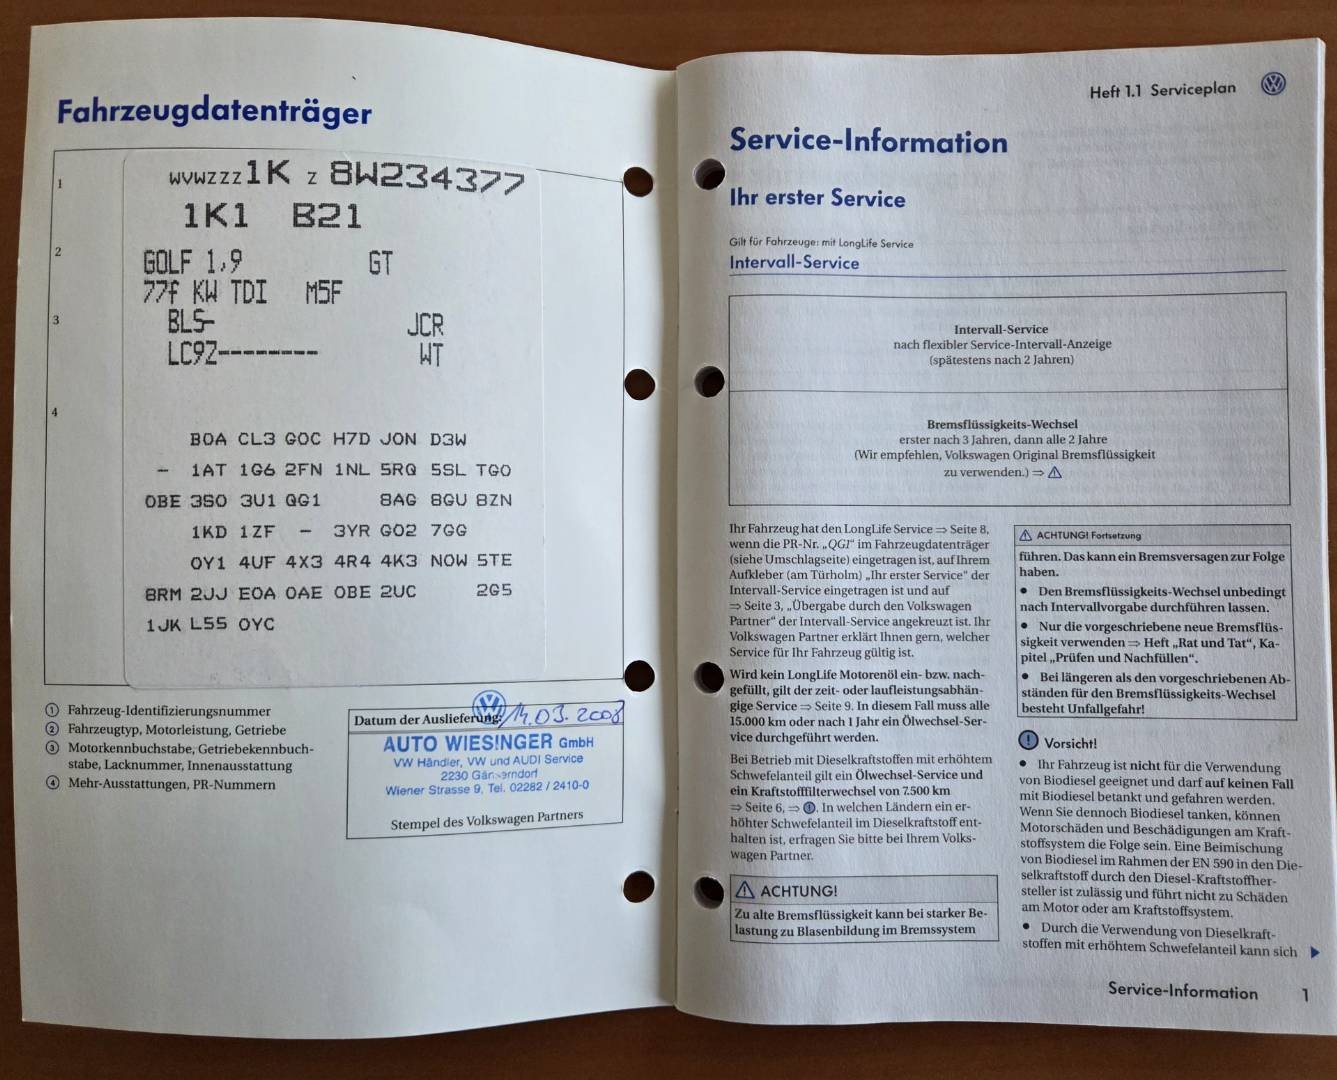 Fahrzeugdatenträger
1
WVWZZZ1K Z 8W234377
1K1 B21
2
GOLF 1,9 GT
77f KW TDI M5F
3
BLS- JCR
LC9Z-------- WT
4
BOA CL3 GOC H7D JON D3W
- 1AT 1G6 2FN 1NL 5RQ 5SL TGO
OBE 3SO 3U1 QG1 8AG 8GU 8ZN
1KD 1ZF - 3YR GO2 7GG
OY1 4UF 4X3 4R4 4K3 NOW 5TE
8RM 2JJ EOA OAE OBE 2UC 2G5
1JK L55 OYC
① Fahrzeug-Identifizierungsnummer
② Fahrzeugtyp, Motorleistung, Getriebe
③ Motorkennbuchstabe, Getriebekennbuch-
stabe, Lacknummer, Innenausstattung
④ Mehr-Ausstattungen, PR-Nummern
Datum der Auslieferung: 14.03.2008
AUTO WIESINGER GmbH
VW Händler, VW und AUDI Service
2230 Gänserndorf
Wiener Strasse 9, Tel. 02282 / 2410-0
Stempel des Volkswagen Partners
Heft 1.1 Serviceplan
Service-Information
Ihr erster Service
Gilt für Fahrzeuge: mit LongLife Service
Intervall-Service
Intervall-Service
nach flexibler Service-Intervall-Anzeige
(spätestens nach 2 Jahren)
Bremsflüssigkeits-Wechsel
erster nach 3 Jahren, dann alle 2 Jahre
(Wir empfehlen, Volkswagen Original Bremsflüssigkeit
zu verwenden.) ⇒ ⚠
Ihr Fahrzeug hat den LongLife Service ⇒ Seite 8,
wenn die PR-Nr. „QG1“ im Fahrzeugdatenträger
(siehe Umschlagseite) eingetragen ist, auf Ihrem
Aufkleber (am Türholm) „Ihr erster Service“ der
Intervall-Service eingetragen ist und auf
⇒ Seite 3, „Übergabe durch den Volkswagen
Partner“ der Intervall-Service angekreuzt ist. Ihr
Volkswagen Partner erklärt Ihnen gern, welcher
Service für Ihr Fahrzeug gültig ist.
Wird kein LongLife Motorenöl ein- bzw. nach-
gefüllt, gilt der zeit- oder laufleistungsabhän-
gige Service ⇒ Seite 9. In diesem Fall muss alle
15.000 km oder nach 1 Jahr ein Ölwechsel-Ser-
vice durchgeführt werden.
Bei Betrieb mit Dieselkraftstoffen mit erhöhtem
Schwefelanteil gilt ein Ölwechsel-Service und
ein Kraftstofffilterwechsel von 7.500 km
⇒ Seite 6, ⇒ !. In welchen Ländern ein er-
höhter Schwefelanteil im Dieselkraftstoff ent-
halten ist, erfragen Sie bitte bei Ihrem Volks-
wagen Partner.
⚠ ACHTUNG!
Zu alte Bremsflüssigkeit kann bei starker Be-
lastung zu Blasenbildung im Bremssystem
⚠ ACHTUNG! Fortsetzung
führen. Das kann ein Bremsversagen zur Folge
haben.
• Den Bremsflüssigkeits-Wechsel unbedingt
nach Intervallvorgabe durchführen lassen.
• Nur die vorgeschriebene neue Bremsflüs-
sigkeit verwenden ⇒ Heft „Rat und Tat“, Ka-
pitel „Prüfen und Nachfüllen“.
• Bei längeren als den vorgeschriebenen Ab-
ständen für den Bremsflüssigkeits-Wechsel
besteht Unfallgefahr!
! Vorsicht!
• Ihr Fahrzeug ist nicht für die Verwendung
von Biodiesel geeignet und darf auf keinen Fall
mit Biodiesel betankt und gefahren werden.
Wenn Sie dennoch Biodiesel tanken, können
Motorschäden und Beschädigungen am Kraft-
stoffsystem die Folge sein. Eine Beimischung
von Biodiesel im Rahmen der EN 590 in den Die-
selkraftstoff durch den Diesel-Kraftstoffher-
steller ist zulässig und führt nicht zu Schäden
am Motor oder am Kraftstoffsystem.
• Durch die Verwendung von Dieselkraft-
stoffen mit erhöhtem Schwefelanteil kann sich ▶
Service-Information 1